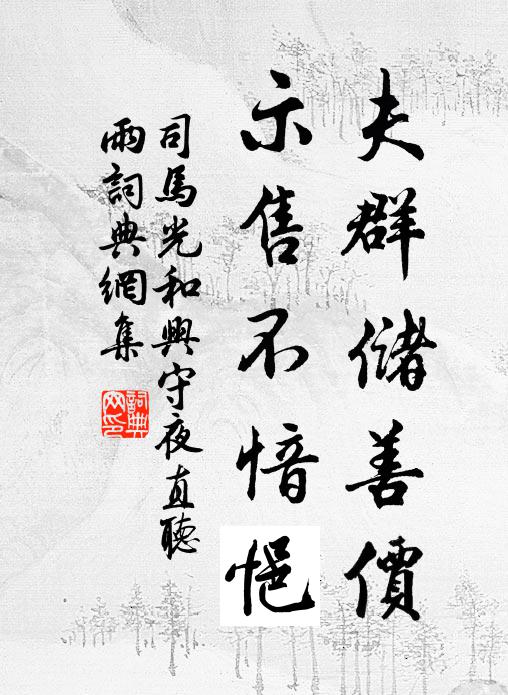 夫群儲善價
示售不愔悒
司馬光和興守夜直聽
雨詞典網集
詞典
网印